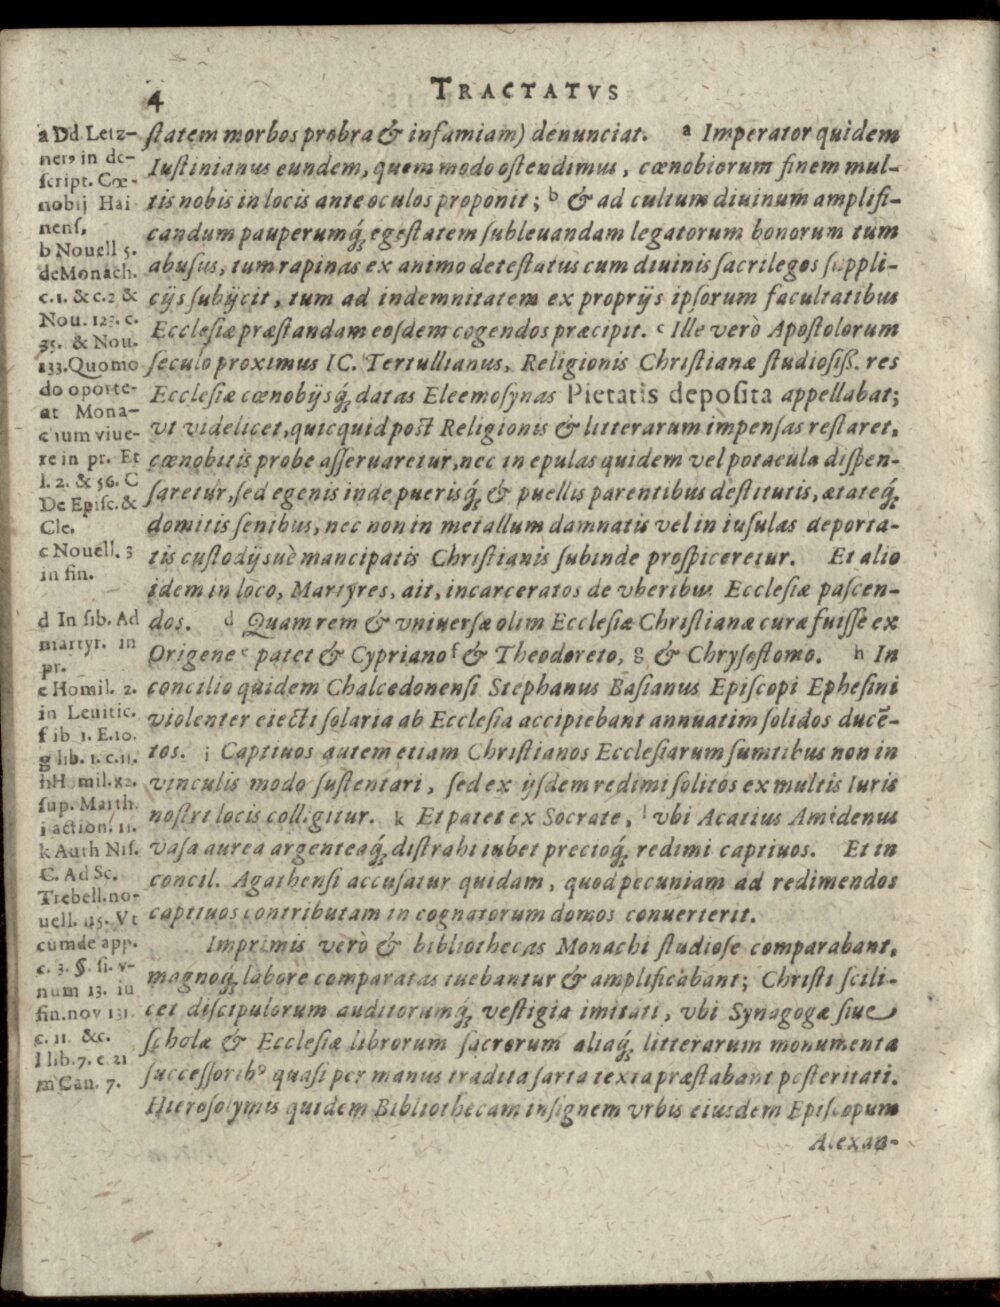 4 TRACTATVS
a Dd Letz-
nerꝰ in de-
script. Cœ-
nobij Hai
nens,
b Nouell 5.
deMonach.
c.1. & c.2 &
Nou. 123. c.
35. & Nou.
133.Quomo
do oporte-
at Mona-
chum viue-
re in pr. Et
l. 2. & 56. C
De Episc. &
Cle.
c Nouell. 3
in fin.
d In lib. Ad
martyr. in
pr.
e Homil. 2.
in Leuitic.
f ib 1. E.10.
g lib. 1. c.11.
h Homil.82.
sup. Matth.
i action. 11.
k Auth Nis.
C. Ad Sc.
Trebell.no-
uell. 115. Vt
cumde app.
c. 3. §. si. v-
num 13. in
fin.nov 131.
c. 11. &c.
l lib.7. c 21
m Can. 7.
ſtatem morbos probra & infamiam) denunciat. a Imperator quidem
Iuſtinianus eundem, quem modo oſtendimus, cœnobiorum finem mul-
tis nobis in locis ante oculos proponit; b & ad cultum diuinum amplifi-
candum pauperumq́; egeſtatem ſubleuandam legatorum bonorum tum
abuſus, tum rapinas ex animo deteſtatus cum diuinis ſacrilegos ſuppli-
cijs ſubijcit, tum ad indemnitatem ex proprijs ipſorum facultatibus
Eccleſiæ præſtandam eoſdem cogendos præcipit. c Ille verò Apoſtolorum
ſeculo proximus IC. Tertullianus, Religionis Chriſtianæ ſtudioſiſſ. res
Eccleſiæ cœnobijsq́; datas Eleemoſynas Pietatis depoſita appellabat;
vt videlicet, quicquid poſt Religionis & litterarum impenſas reſtaret,
cœnobitis probe aſſeruaretur, nec in epulas quidem vel potacula diſpen-
ſaretur, ſed egenis inde puerisq́; & puellis parentibus deſtitutis, ætateq́;
domitis ſenibus, nec non in metallum damnatis vel in iuſulas deporta-
tis cuſtodijsuè mancipatis Chriſtianis ſubinde proſpiceretur. Et alio
idem in loco, Martyres, ait, incarceratos de vberibus Eccleſiæ paſcen-
dos. d Quam rem & vniuerſæ olim Eccleſiæ Chriſtianæ curæ fuiſſe ex
Origene e patet & Cypriano f & Theodoreto, g & Chryſoſtomo. h In
concilio quidem Chalcedonenſi Stephanus Baſianus Epiſcopi Epheſini
violenter eiecti ſolaria ab Eccleſia accipiebant annuatim ſolidos ducē-
tos. i Captiuos autem etiam Chriſtianos Eccleſiarum ſumtibus non in
vinculis modo ſuſtentari, ſed ex ijſdem redimi ſolitos ex multis Iuris
noſtri locis colligitur. k Et patet ex Socrate, l vbi Acatius Amidenus
vaſa aurea argenteaq́; diſtrahi iubet precioq́; redimi captiuos. Et in
concil. Agathenſi accuſatur quidam, quod pecuniam ad redimendos
captiuos contributam in cognatorum domos conuerterit.
Imprimis verò & bibliothecas Monachi ſtudioſe comparabant,
magnoq́; labore comparatas tuebantur & amplificabant; Chriſti ſcili-
cet diſcipulorum auditorumq́; veſtigia imitati, vbi Synagogæ ſiue
ſcholæ & Eccleſiæ librorum ſacrorum aliaq́; litterarum monumenta
ſucceſſoribꝰ quaſi per manus tradita ſarta tecta præſtabant poſteritati.
Hieroſolymis quidem Bibliothecam inſignem vrbis eiusdem Epiſcopum
Alexan-